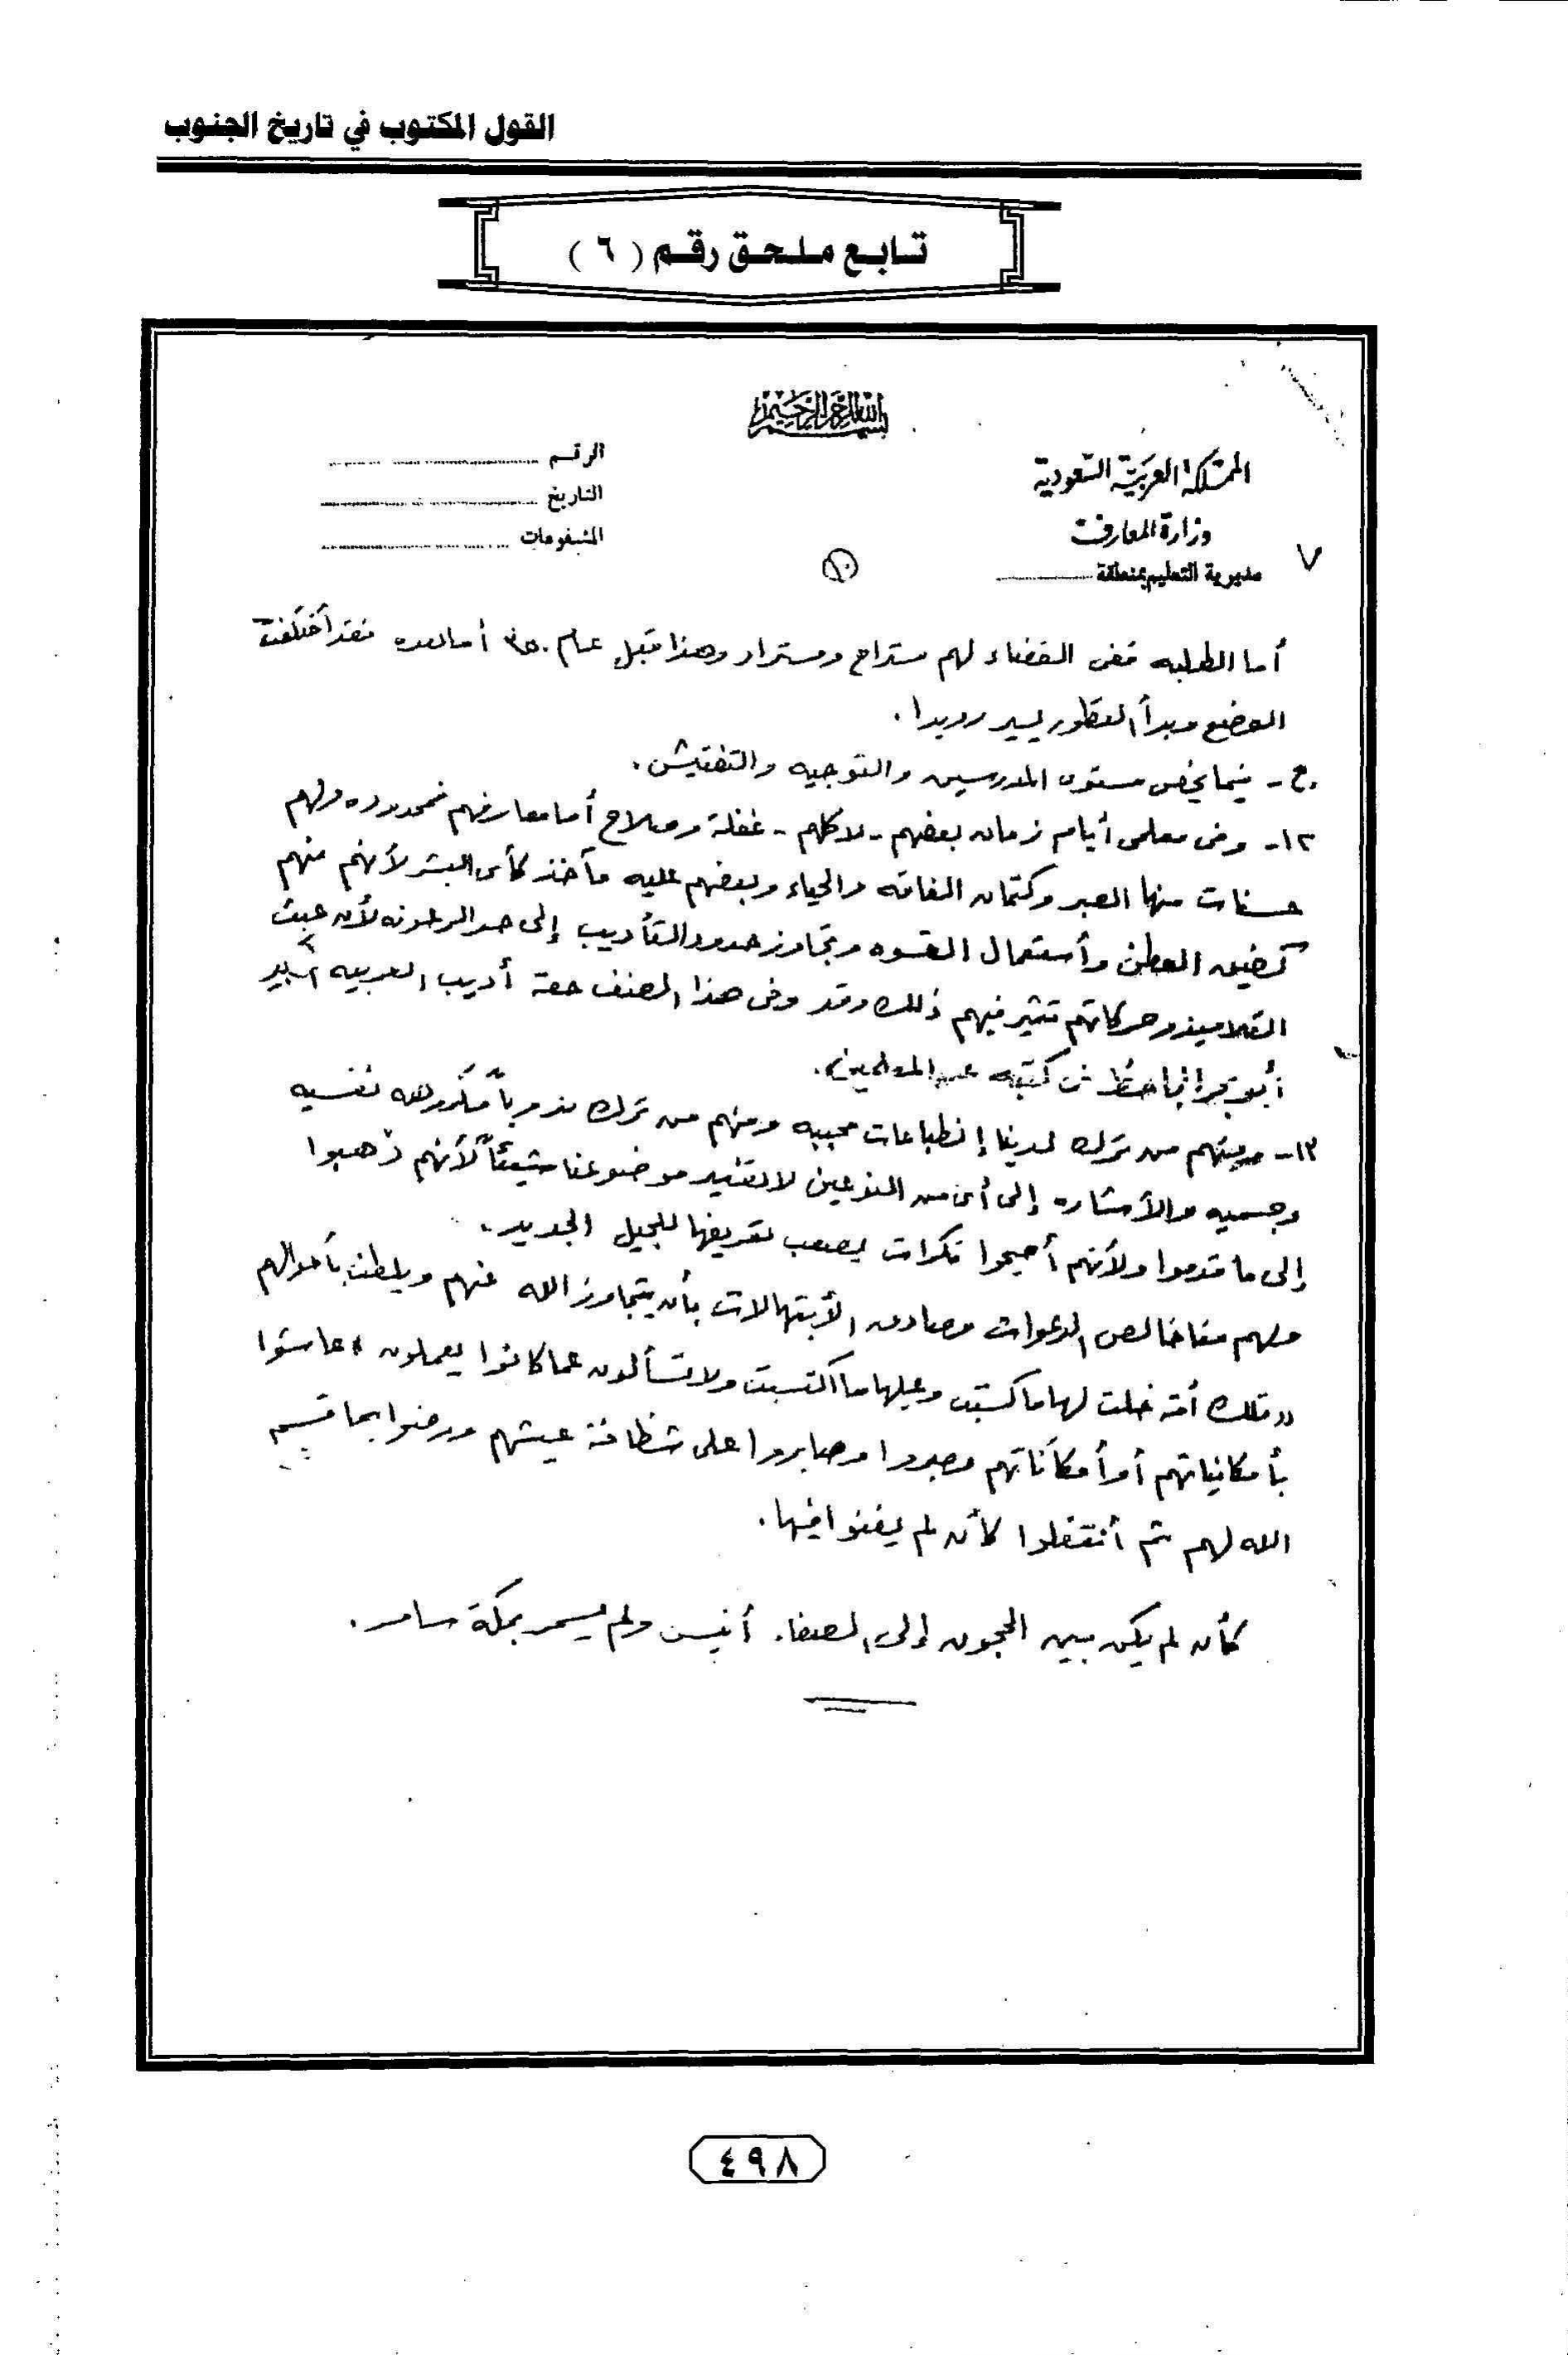 القول المكتوب في تاريخ الجنوب
تابع ملحق رقم ( ٦ )
بسم الله الرحمن الرحيم
المملكة العربية السعودية
وزارة المعارف
مديرية التعليم بمنطقة
الرقم
التاريخ
المشفوعات
٧
١٠
أما الطلبه ففى الفضاء لهم مستراح ومستراد وهذا قبل عام ٣٥٠ أما بعده فقد أختلفت
الوضع وبدأ التطور يسير رويدا .
ع - فيما يخص مستوى المدرسين والتوجيه والتفتيش .
١٢- وفى معلمى أيام زمان بعضهم - لا كلهم - غفلة وصلاح أما معارفهم فمحدوده ولهم
حسنات منها الصبر وكتمان الفاقه والحياء وبعضهم عليه مآخذ كأى البشر لأنهم منهم
كضيق العطن وأستعمال القسوه وتجاوز حدود التأديب إلى حد الرعونه لأن عبث
التلاميذ وحركاتهم تثير فيهم ذلك وقد وفى هذا الصنف حقة أديب العربيه الكبير
أبو بحر الجاحظ فى كتبه عن المعلمين .
١٣- ومنهم من ترك لدينا إنطباعات محببه ومنهم من ترك ندوباً مكروهه نفسيه
وجسميه والأشاره إلى أى من النوعين لاتفيد موضوعنا شيئاً لأنهم ذهبوا
إلى ما قدموا ولأنهم أصبحوا نكرات يصعب تعريفها للجيل الجديد .
ولهم منا خالص الدعوات وصادق الأبتهالات بأن يتجاوز الله عنهم ويلطف بأحوالهم
« تلك أمة خلت لها ما كسبت وعليها ما اكتسبت ولا تسألون عما كانوا يعملون » عاشوا
بأمكانياتهم أو أمكاناتهم وصبروا وصابروا على شظافة عيشهم ورضوا بما قسم
الله لهم ثم أنتقلوا كأن لم يغنوا فيها .
كأن لم يكن بين الحجون إلى الصفا . أنيس ولم يسمر بمكة سامر .
٤٩٨